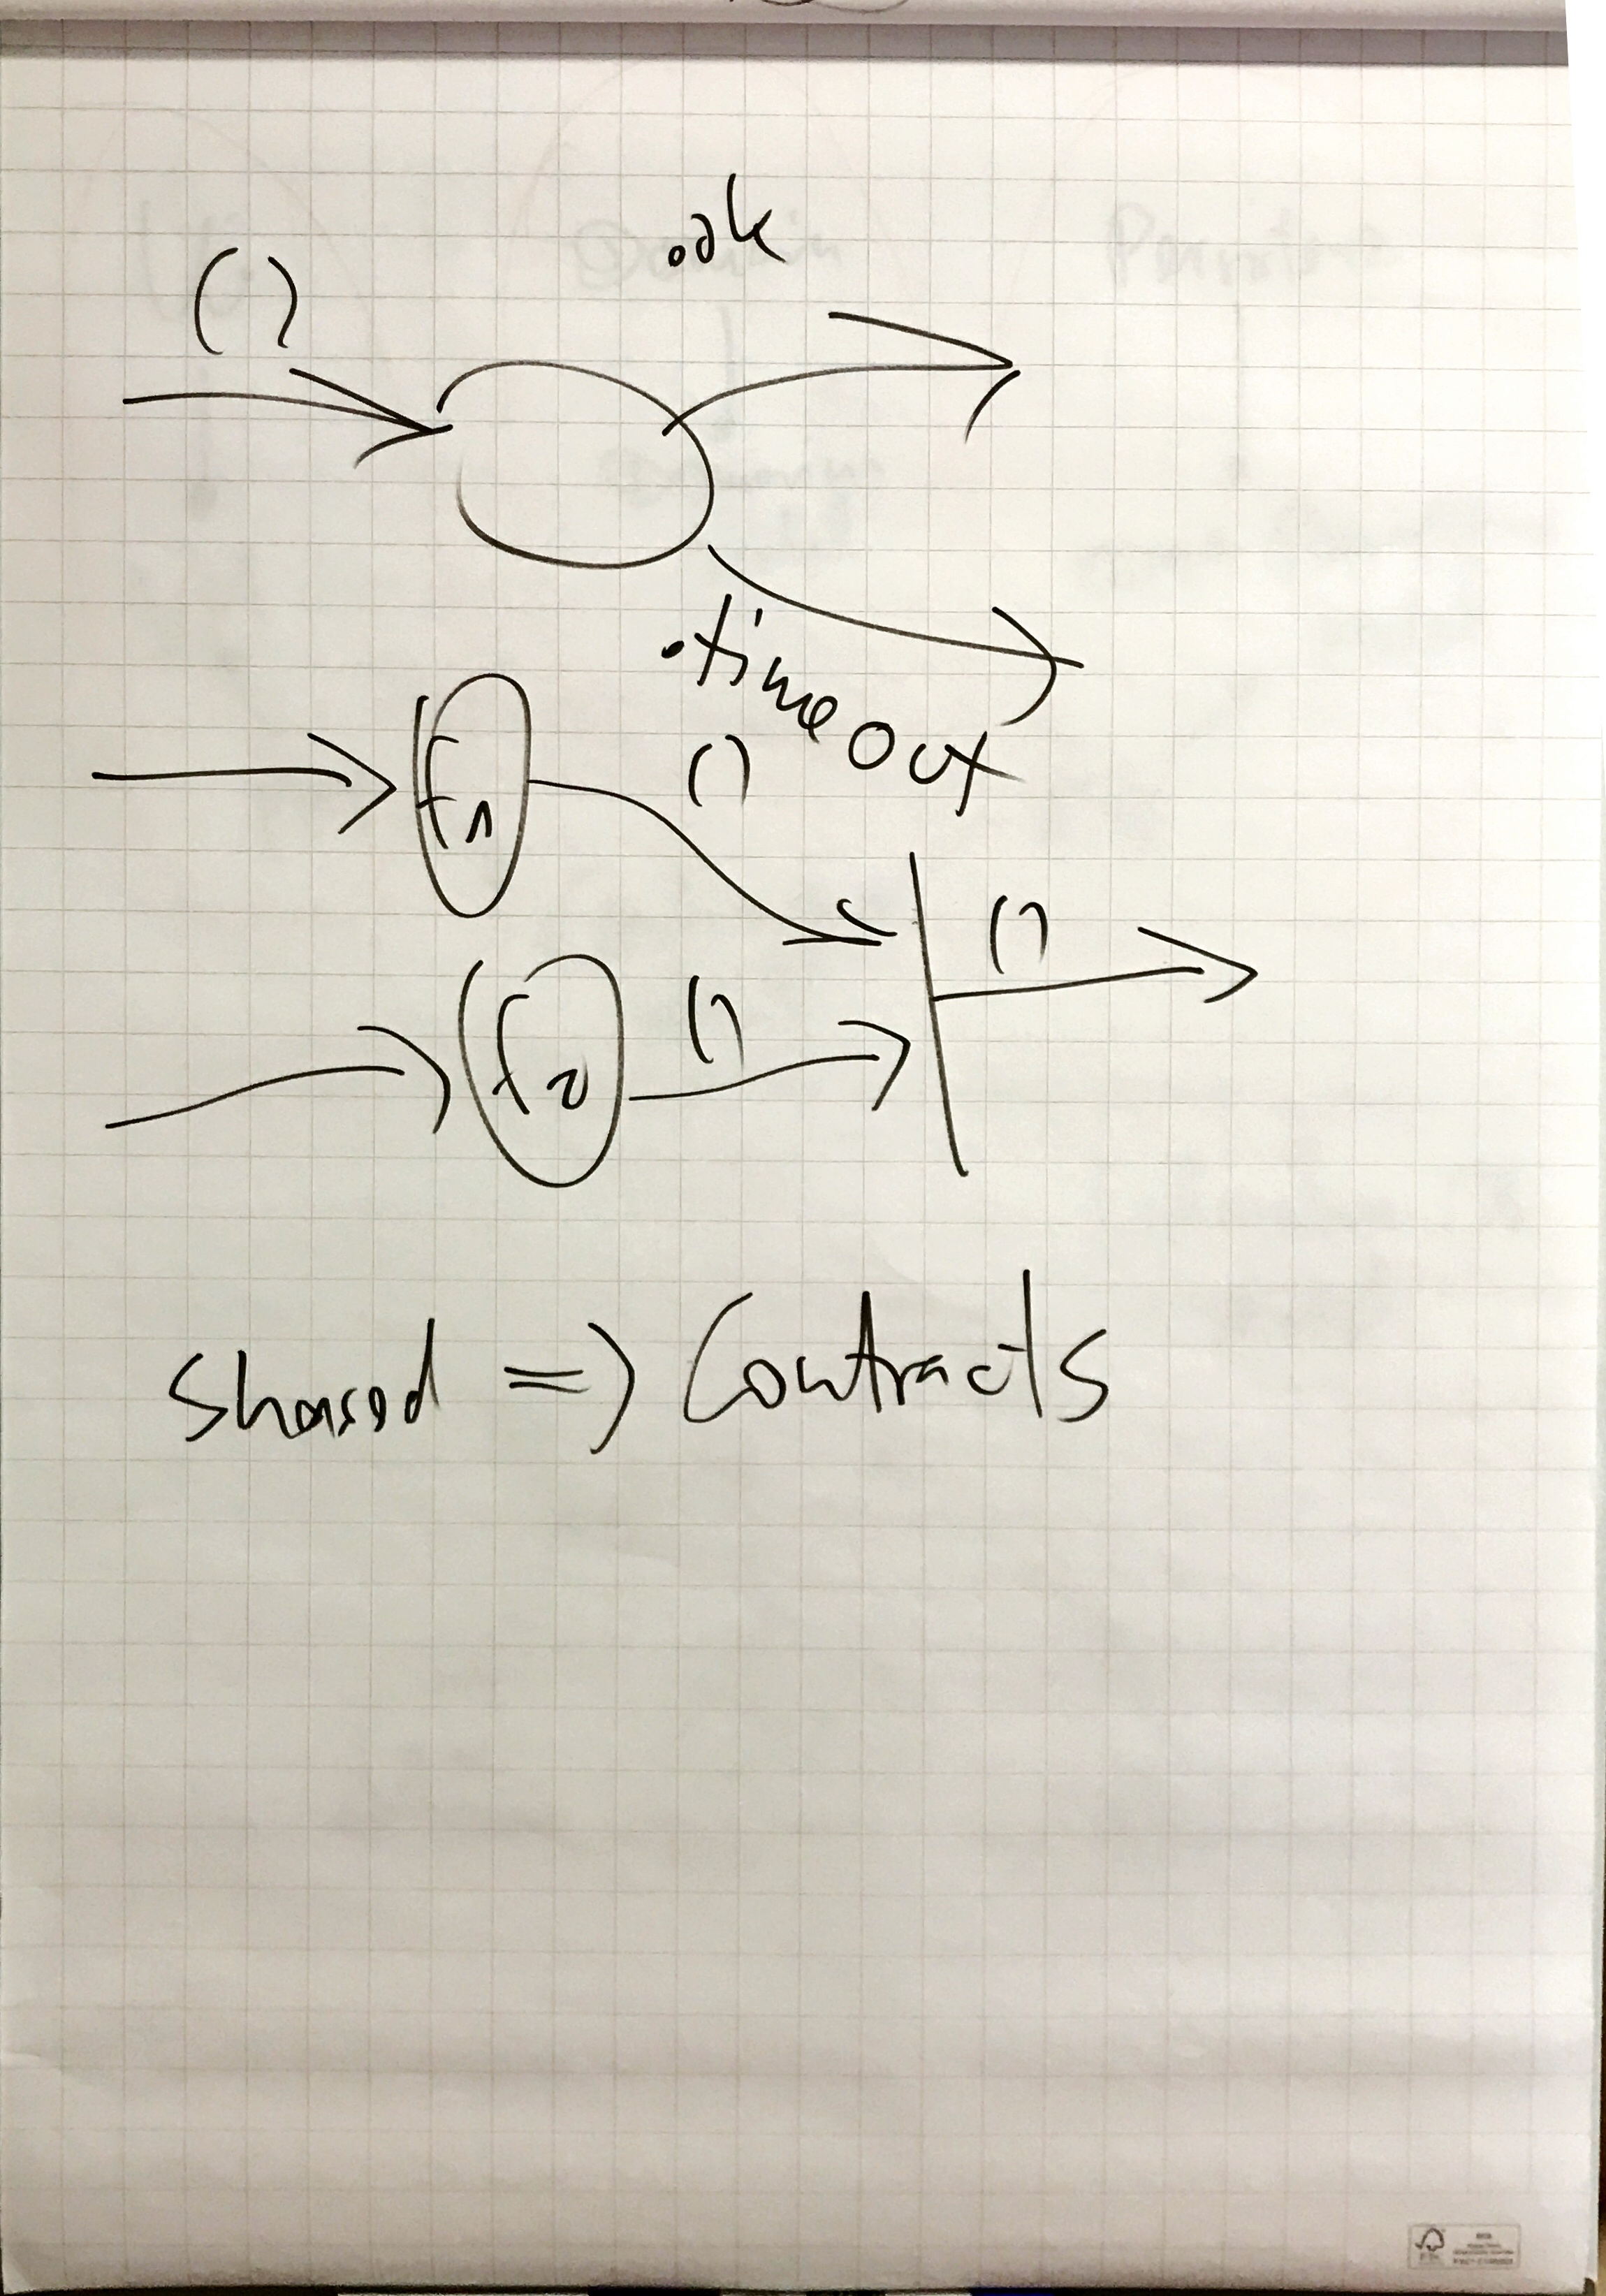 .ok
()
.timeout
f1
()
()
f2
()
shared => Contracts